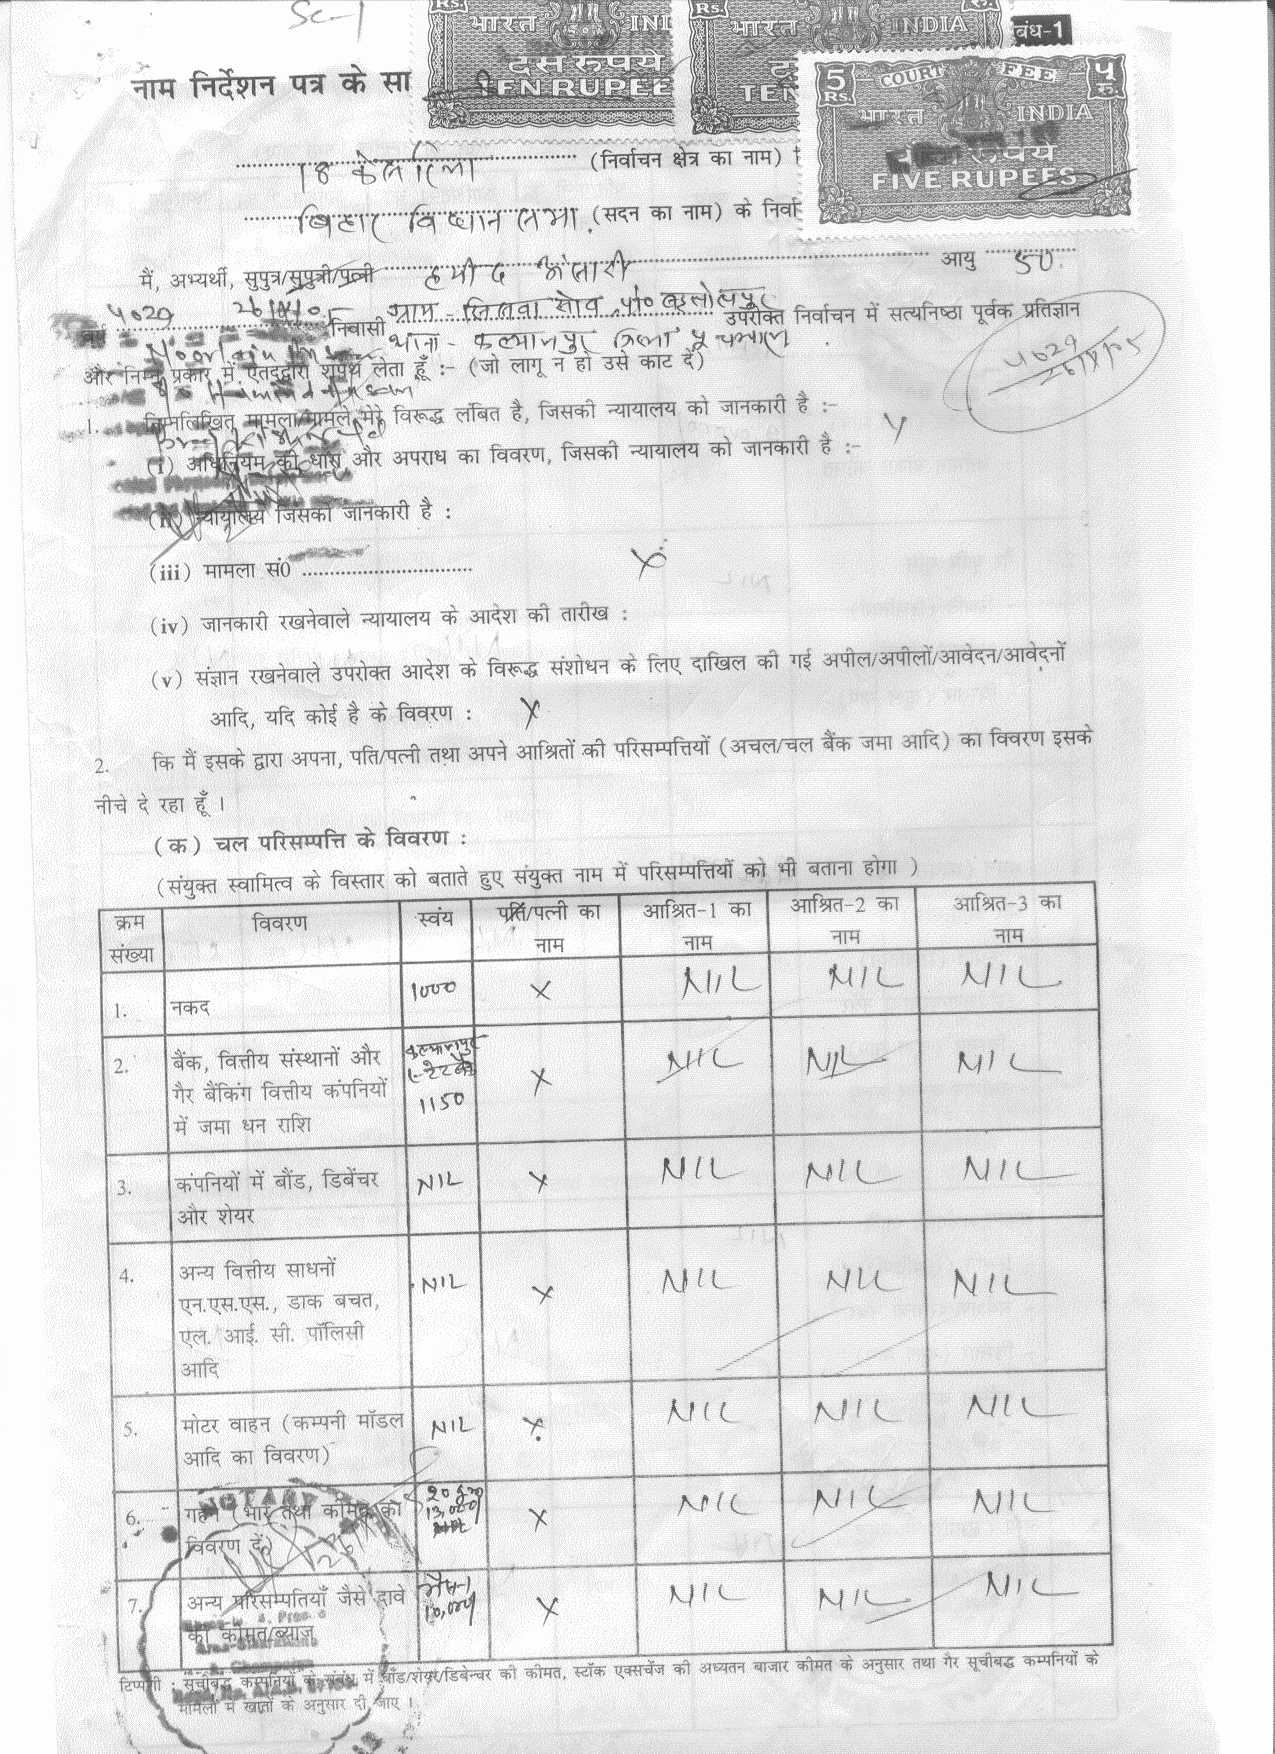 Sc-1
बंध-1
Rs. भारत INDIA दस रुपये TEN RUPEE
Rs. भारत INDIA TEN
5 Rs. COURT FEE ५ रु. भारत INDIA रुपये FIVE RUPEES
नाम निर्देशन पत्र के सा
18 (निर्वाचन क्षेत्र का नाम)
बिहार विधान सभा (सदन का नाम) के निर्वा
मैं, अभ्यर्थी, सुपुत्र/सुपुत्री/पत्नी हमीद अंसारी आयु 50
4029 निवासी ग्राम - पो० उपरोक्त निर्वाचन में सत्यनिष्ठा पूर्वक प्रतिज्ञान
थाना - कल्यानपुर जिला पू चम्पारण
और निम्न प्रकार में एतद्द्वारा शपथ लेता हूँ :- (जो लागू न हो उसे काट दें)
4029
1. निम्नलिखित मामला/मामले मेरे विरूद्ध लंबित है, जिसकी न्यायालय को जानकारी है :-
(i) अधिनियम की धारा और अपराध का विवरण, जिसकी न्यायालय को जानकारी है :- X
(ii) न्यायालय जिसको जानकारी है :
(iii) मामला सं0 .............................. X
(iv) जानकारी रखनेवाले न्यायालय के आदेश की तारीख :
(v) संज्ञान रखनेवाले उपरोक्त आदेश के विरूद्ध संशोधन के लिए दाखिल की गई अपील/अपीलों/आवेदन/आवेदनों
आदि, यदि कोई है के विवरण : X
2. कि मैं इसके द्वारा अपना, पति/पत्नी तथा अपने आश्रितों की परिसम्पत्तियों (अचल/चल बैंक जमा आदि) का विवरण इसके
नीचे दे रहा हूँ ।
(क) चल परिसम्पत्ति के विवरण :
(संयुक्त स्वामित्व के विस्तार को बताते हुए संयुक्त नाम में परिसम्पत्तियों को भी बताना होगा )
क्रम संख्या विवरण स्वंय पति/पत्नी का नाम आश्रित-1 का नाम आश्रित-2 का नाम आश्रित-3 का नाम
1. नकद 1000 X NIL NIL NIL
2. बैंक, वित्तीय संस्थानों और गैर बैंकिंग वित्तीय कंपनियों में जमा धन राशि कल्यानपुर 1150 X NIL NIL NIL
3. कंपनियों में बौंड, डिबेंचर और शेयर NIL X NIL NIL NIL
4. अन्य वित्तीय साधनों एन.एस.एस., डाक बचत, एल. आई. सी. पॉलिसी आदि NIL X NIL NIL NIL
5. मोटर वाहन (कम्पनी मॉडल आदि का विवरण) NIL X NIL NIL NIL
6. गहने (भार तथा कीमत का विवरण दें) 20 ग्राम 13,000/ X NIL NIL NIL
7. अन्य परिसम्पतियाँ जैसे दावे की कीमत/ब्याज भैंस-1 10,000/ X NIL NIL NIL
NOTARY
टिप्पणी : सूचीबद्ध कम्पनियों के संबंध में बौंड/शेयर/डिबेन्चर की कीमत, स्टॉक एक्सचेंज की अध्यतन बाजार कीमत के अनुसार तथा गैर सूचीबद्ध कम्पनियों के
मामलों में खातों के अनुसार दी जाए ।